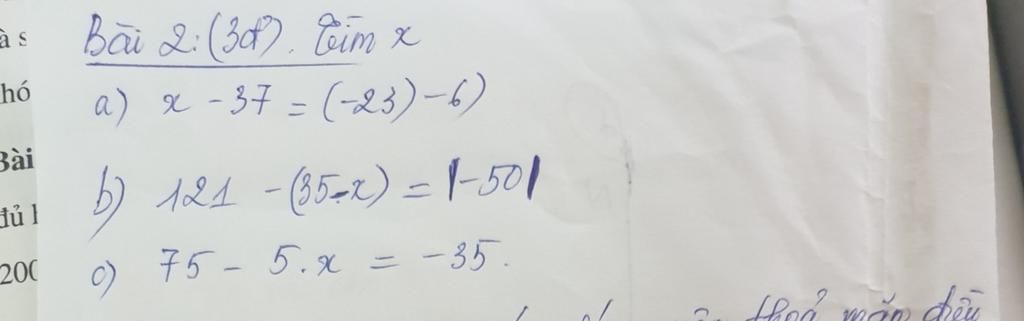 à s
hó
Bài
đủ l
200
Bài 2: (3đ). Tìm x
a) x - 37 = (-23) - 6)
b) 121 - (35 - x) = |-50|
c) 75 - 5.x = -35.
thoả mãn điều